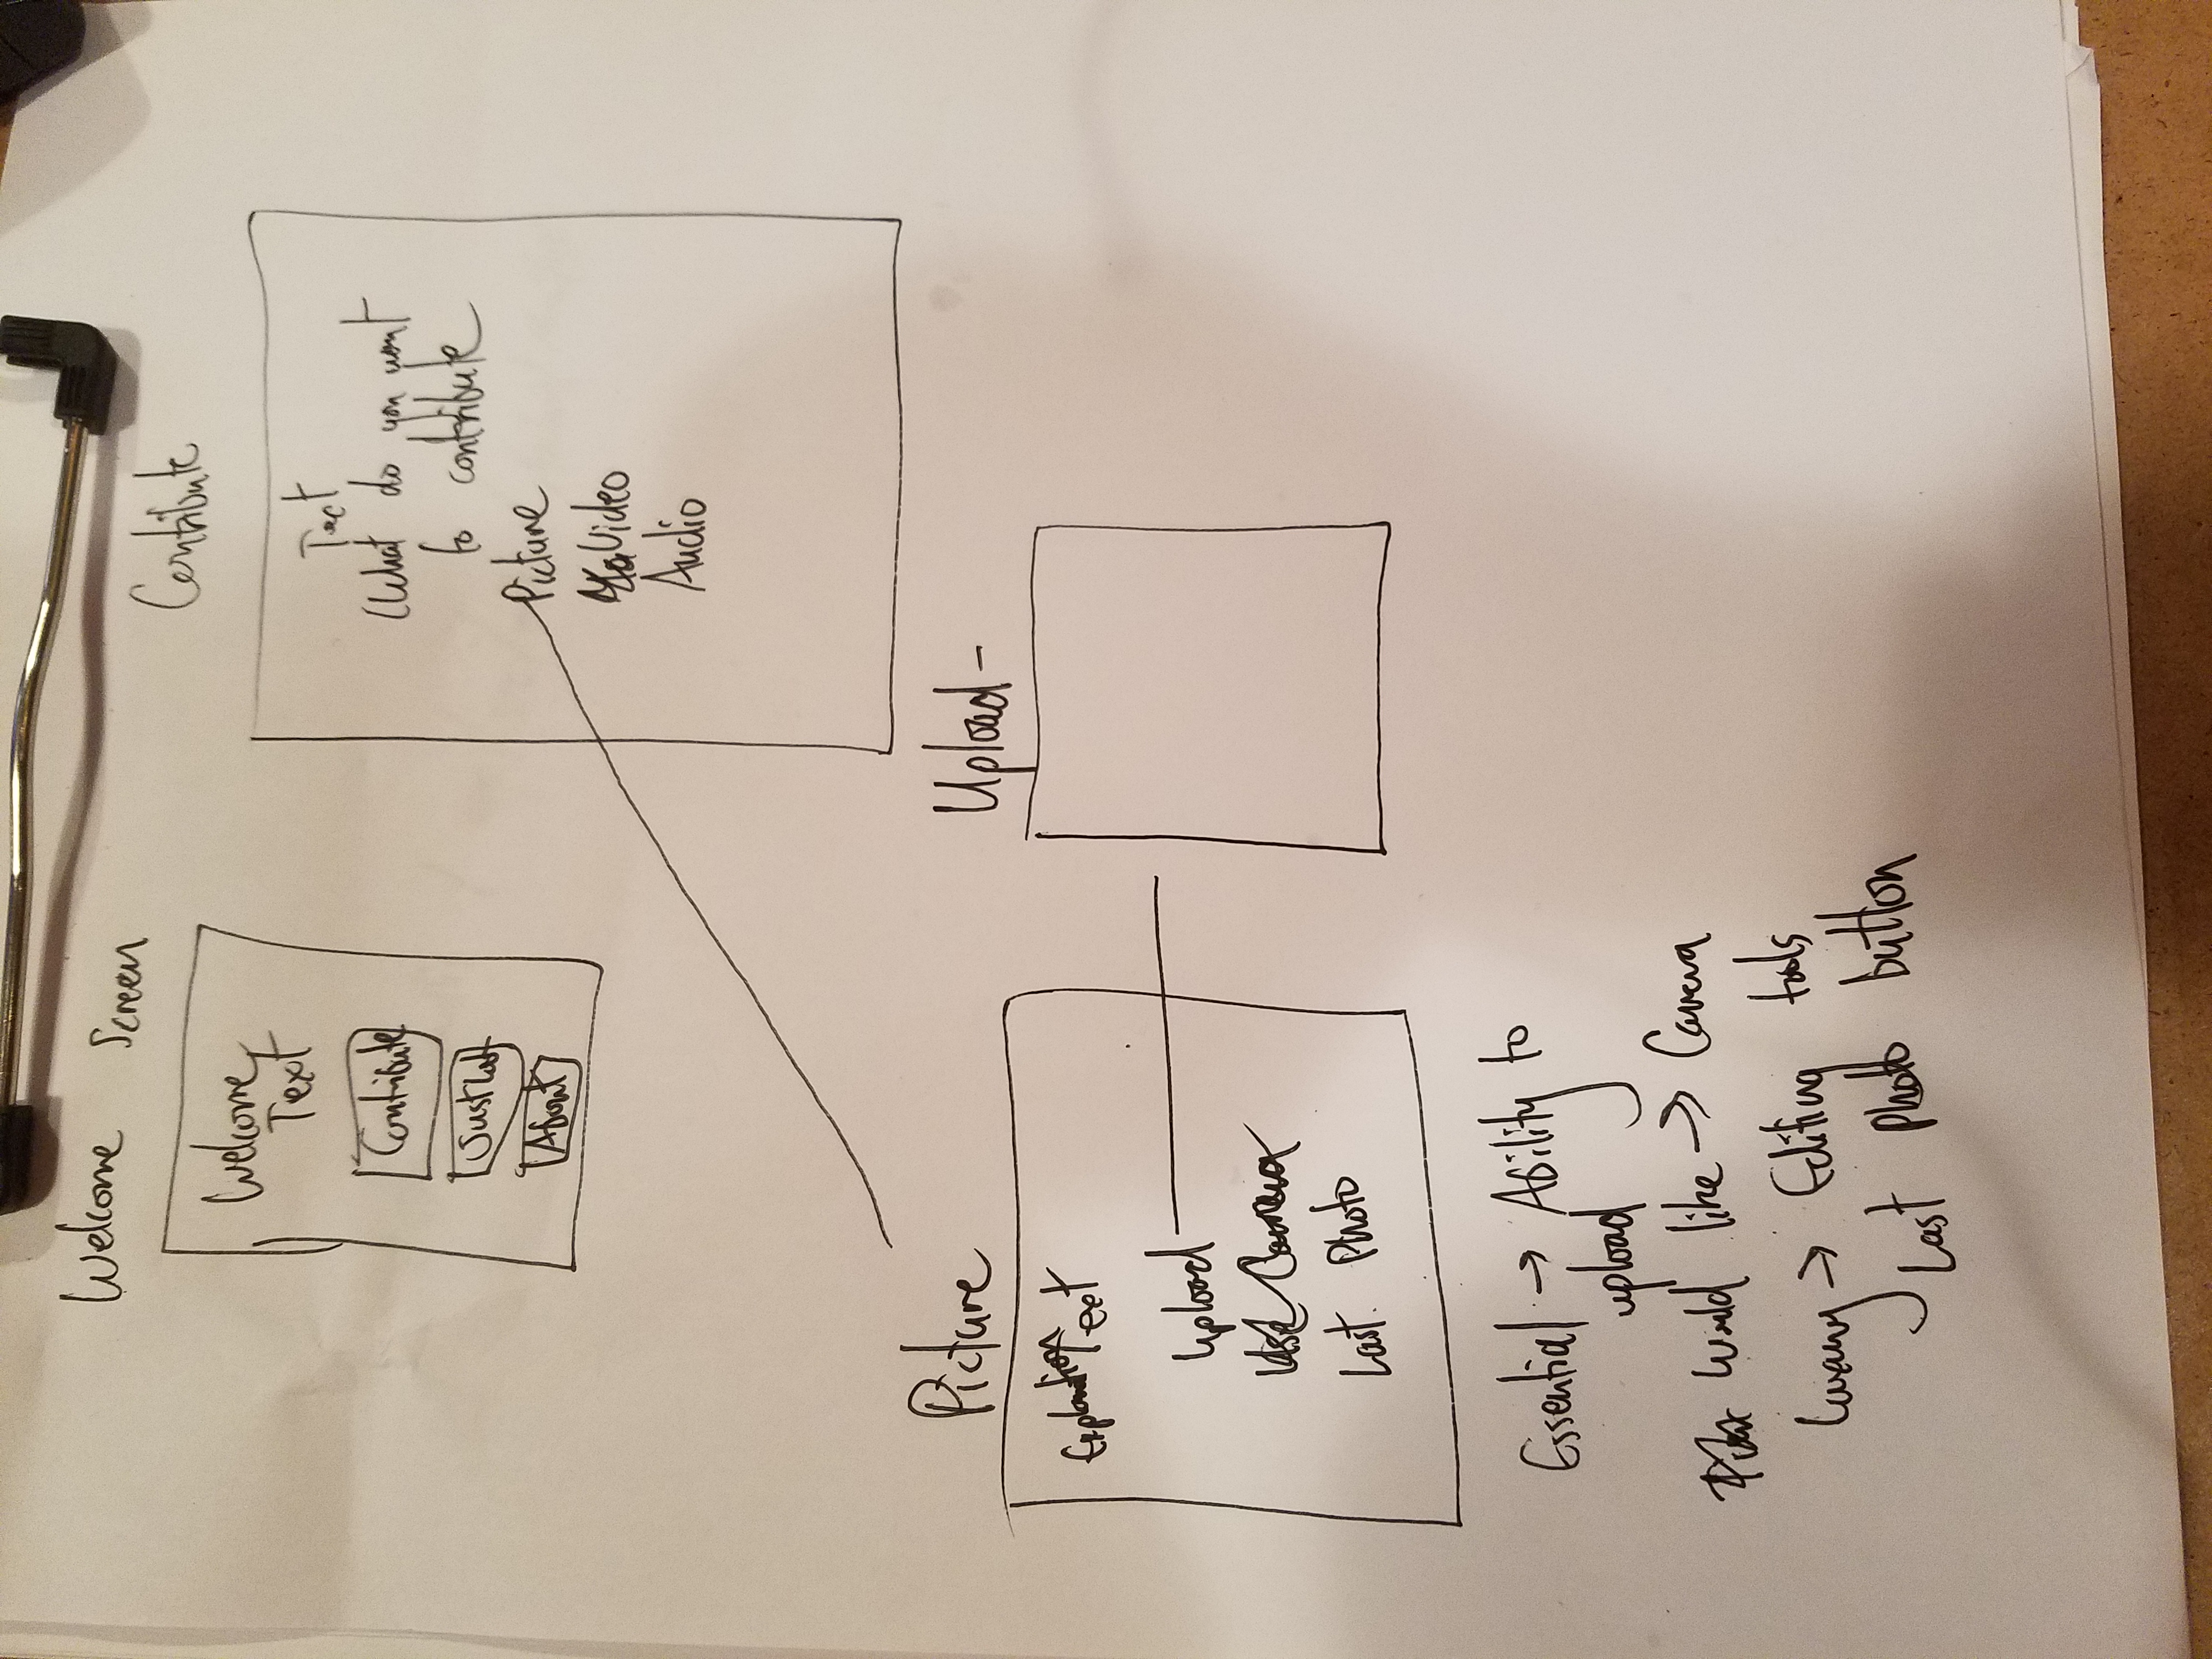 Welcome Screen
Welcome
Text
Contribute
Just
About
Contribute
Text
(What do you want
to contribute
Picture
Video
Audio
Picture
Explanation Text
Upload
Use Camera
Last Photo
Upload -
Essential → Ability to
upload
Would like → Camera
Luxury → Editing tools
Last Photo button